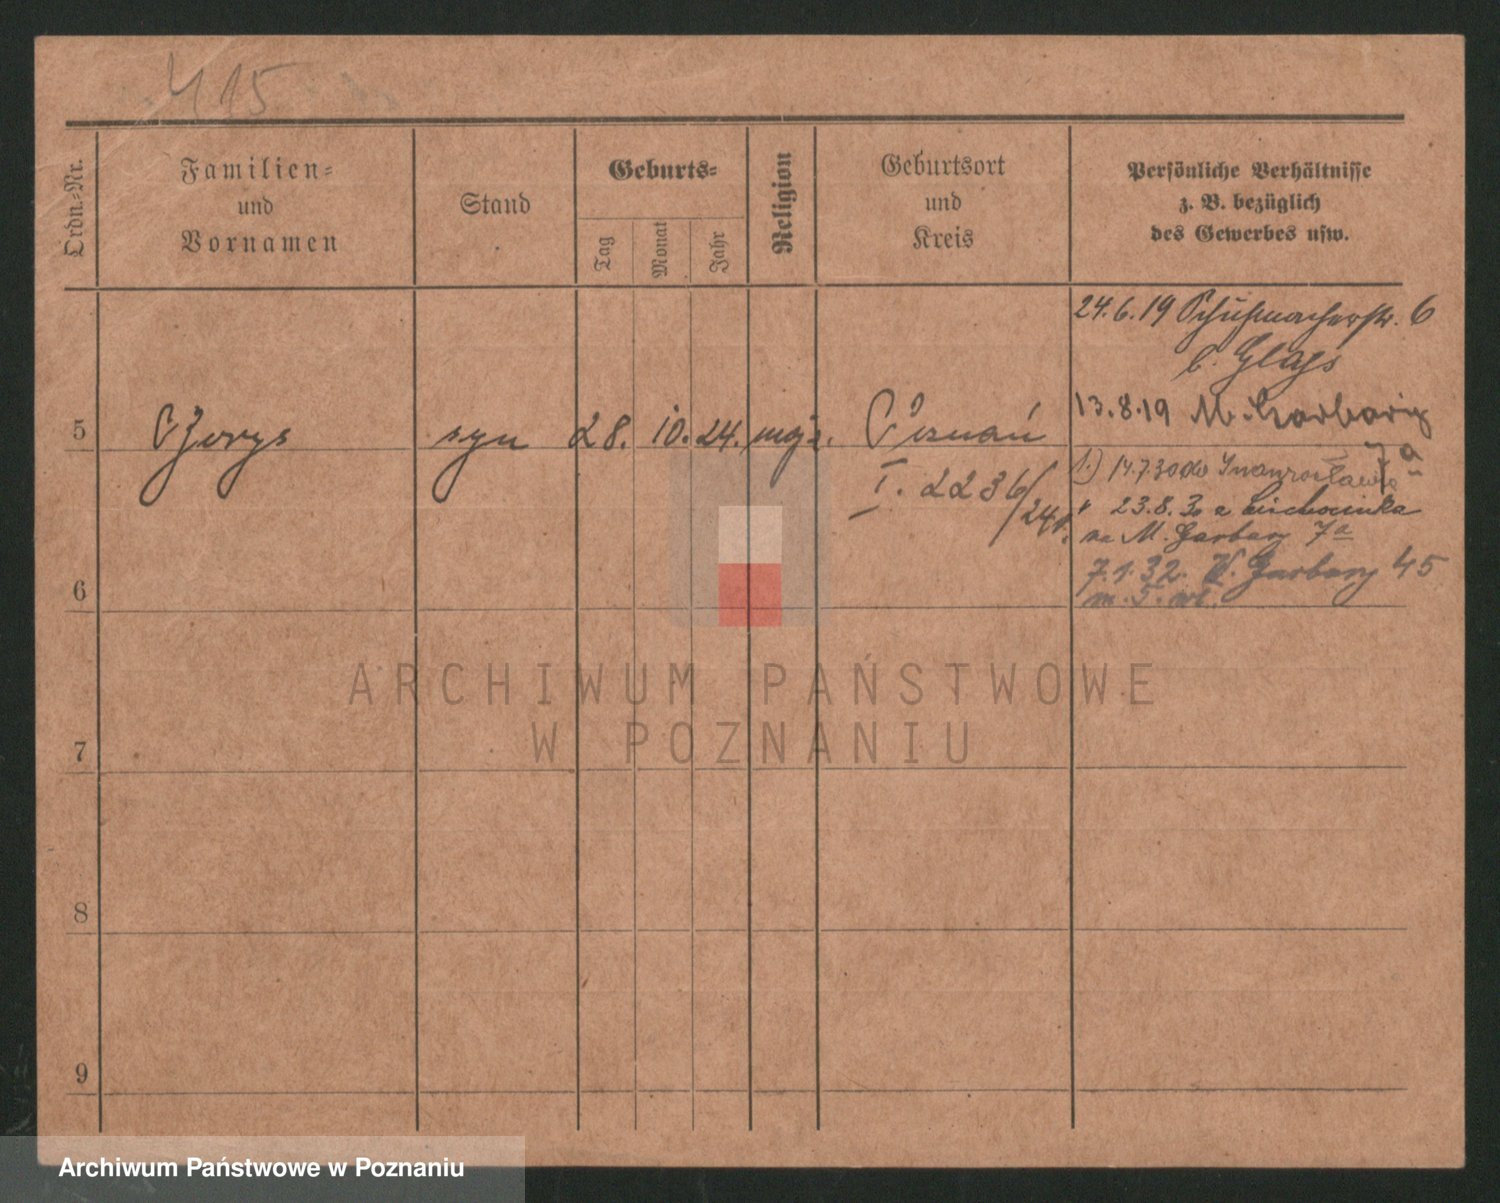 415
Ordn.-Nr.
Familien-
und
Vornamen
Stand
Geburts-
Tag
Monat
Jahr
Religion
Geburtsort
und
Kreis
Persönliche Verhältnisse
z. B. bezüglich
des Gewerbes usw.
24.6.19 Schuhmacherstr. 6
b.
13.8.19 M. Garbary
7a
5
syn
28. 10. 24. mojż.
Poznań
I. 2236/24.
1.) 14.7.30 do Inowrocławia
23.8.30 z Ciechocinka
na M. Garbary 7a
7.1.32. W. Garbary 45
m. 5.
6
7
8
9
ARCHIWUM PAŃSTWOWE
W POZNANIU
Archiwum Państwowe w Poznaniu